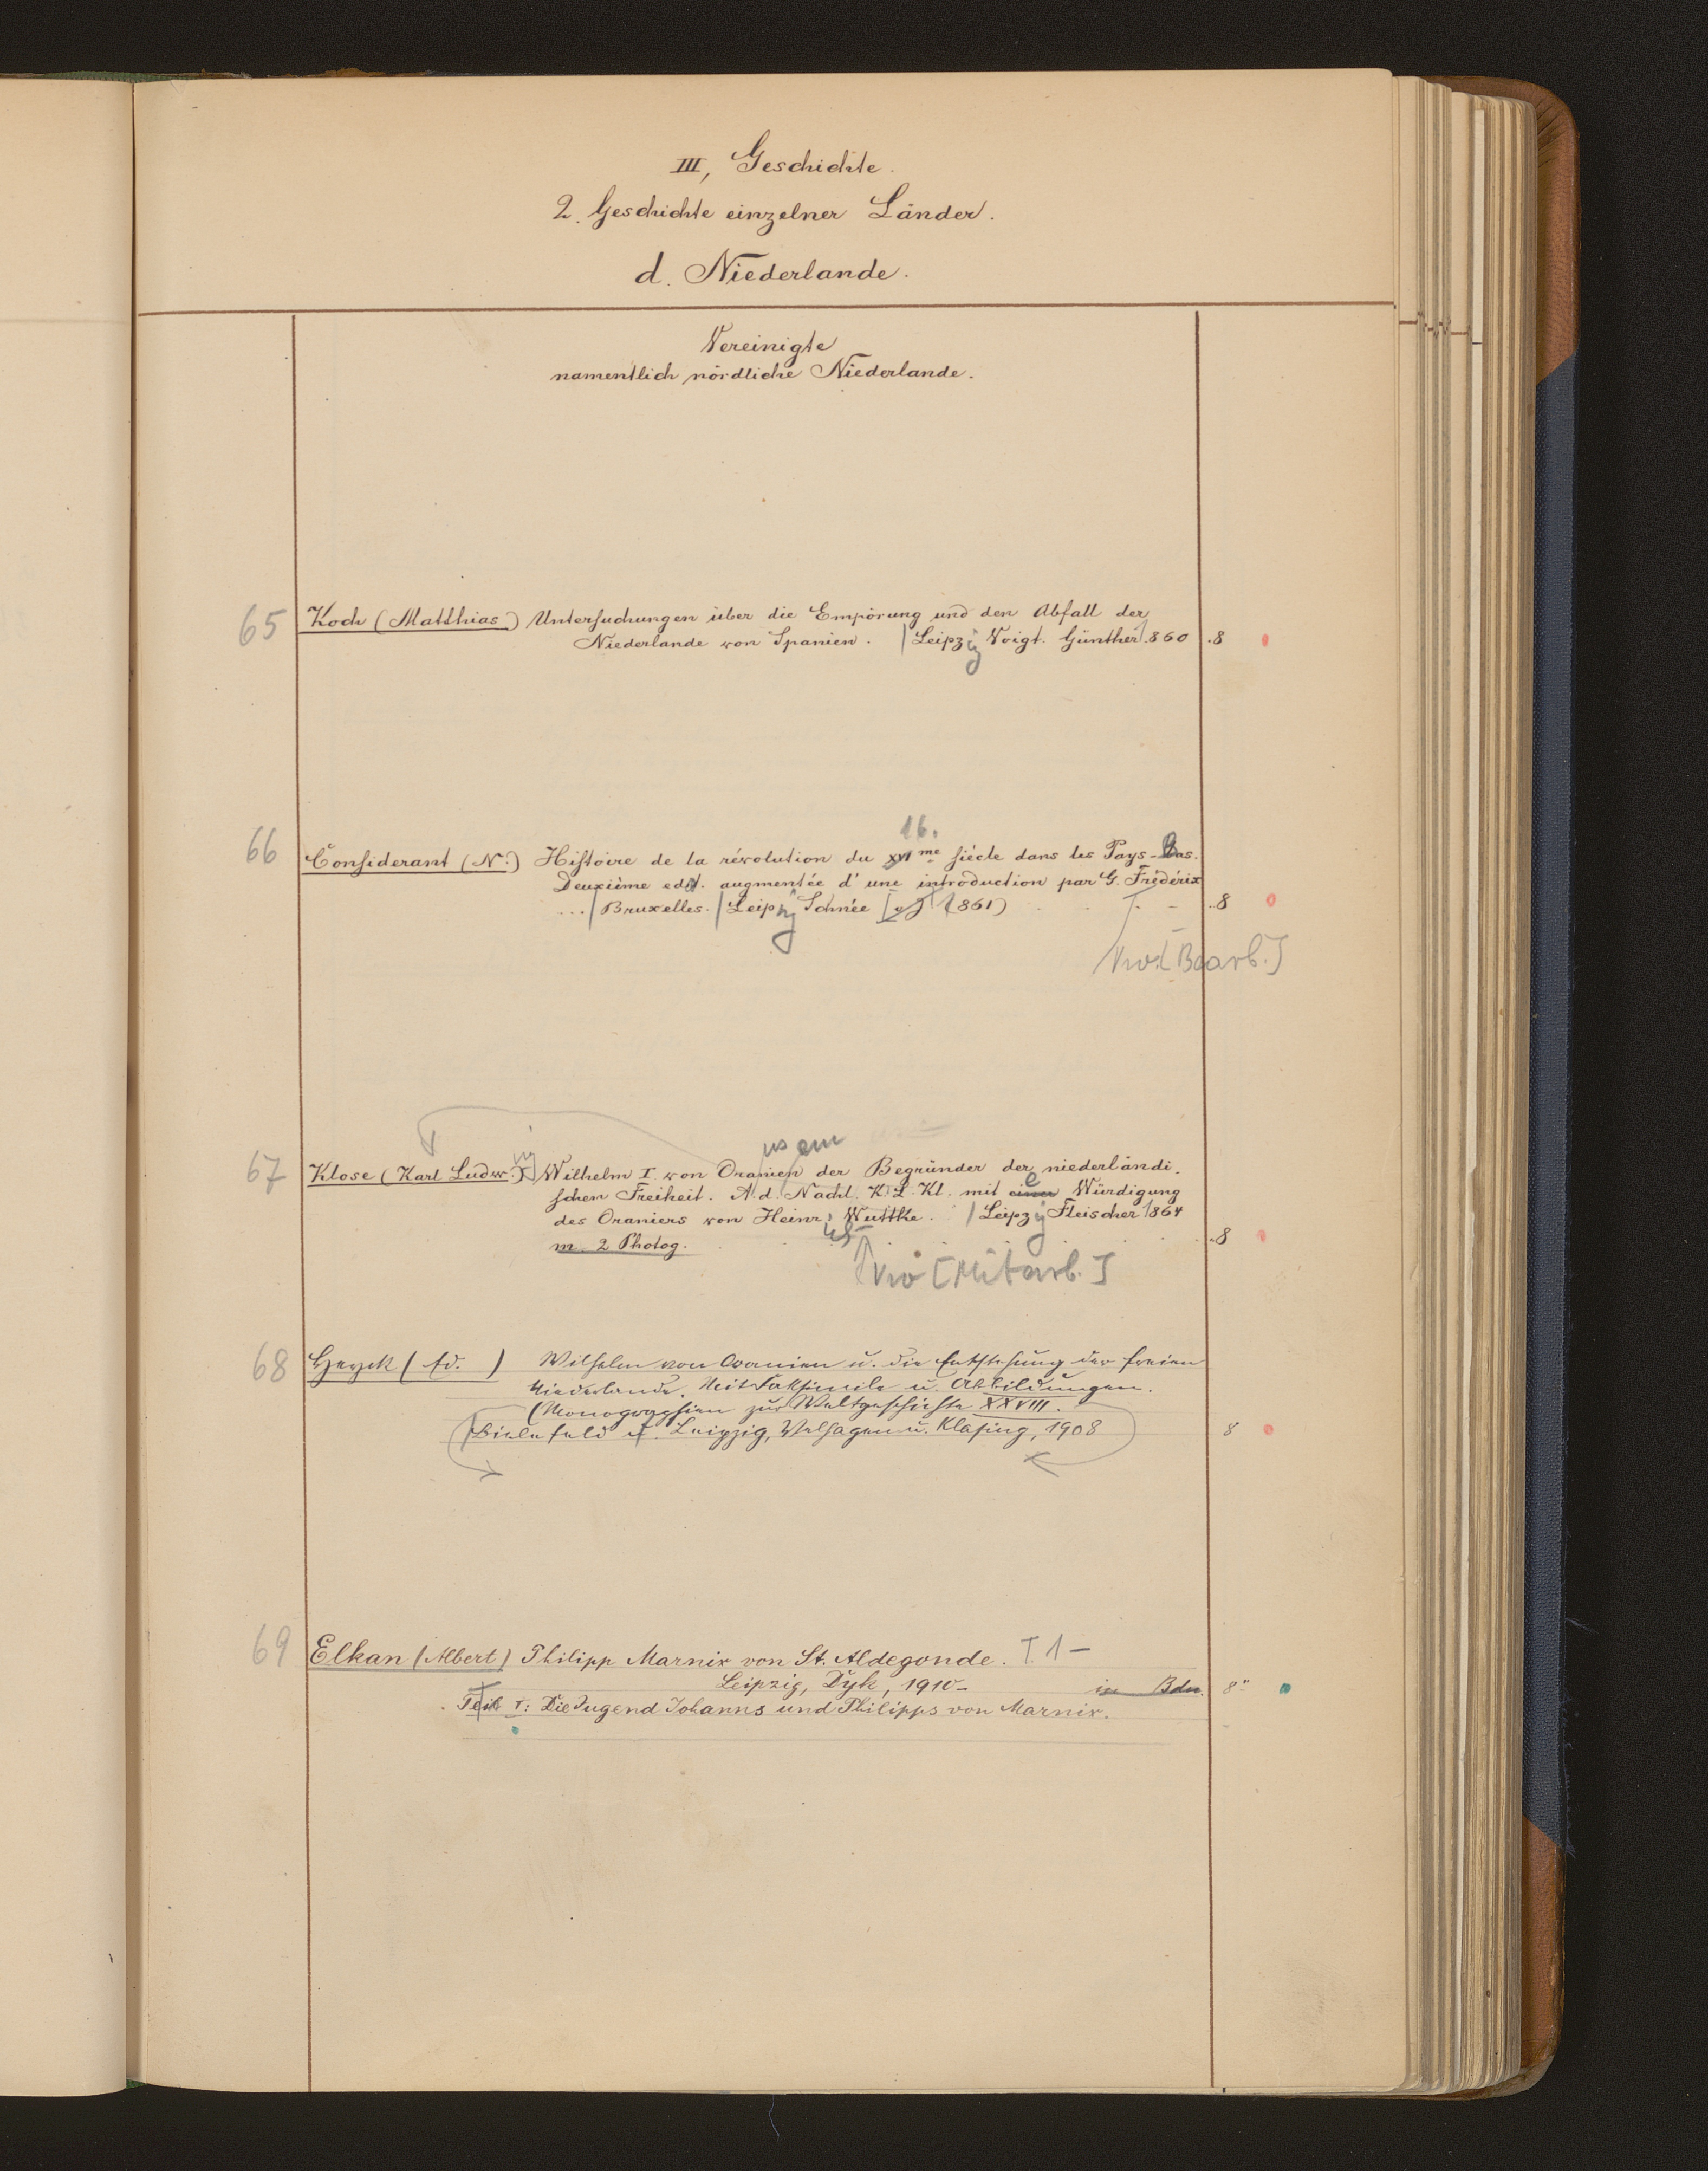 III, Geschichte.
2. Geschichte einzelner Länder.
d. Niederlande.
Vereinigte
namentlich nördliche Niederlande.
65 Koch (Matthias) Untersuchungen über die Empörung und den Abfall der
Niederlande von Spanien. | Leipzig Voigt. Günther 1860 .8
16.
66 Considerant (N.) Histoire de la révolution du XVI me siécle dans les Pays-Bas.
Deuxième edit. augmentée d'une introduction par G. Frédérix
... | Bruxelles. | Leipzig Schnée (1861) .8
[Bearb.]
us em
67 Klose (Karl Ludw.) Wilhelm I. von Oranien der Begründer der niederländi-
schen Freiheit. A. d. Nachl. K. L. Kl. mit einer Würdigung
des Oraniers von Heinr. Wuttke. | Leipzig Fleischer 1864
m. 2 Photog. .8
[Mitarb.]
68 Heyck (Ed. ) Wilhelm von Oranien u. die Entstehung der freien
Niederlande. Mit Faksimile u. Abbildungen.
(Monographien zur Weltgeschichte XXVIII.
Bielefeld u. Leipzig, Velhagen u. Klasing, 1908 8
69 Elkan (Albert) Philipp Marnix von St. Aldegonde. T. 1 –
Leipzig, Dyk, 1910- in Bdn. 8"
Teil I: Die Jugend Johanns und Philipps von Marnix.